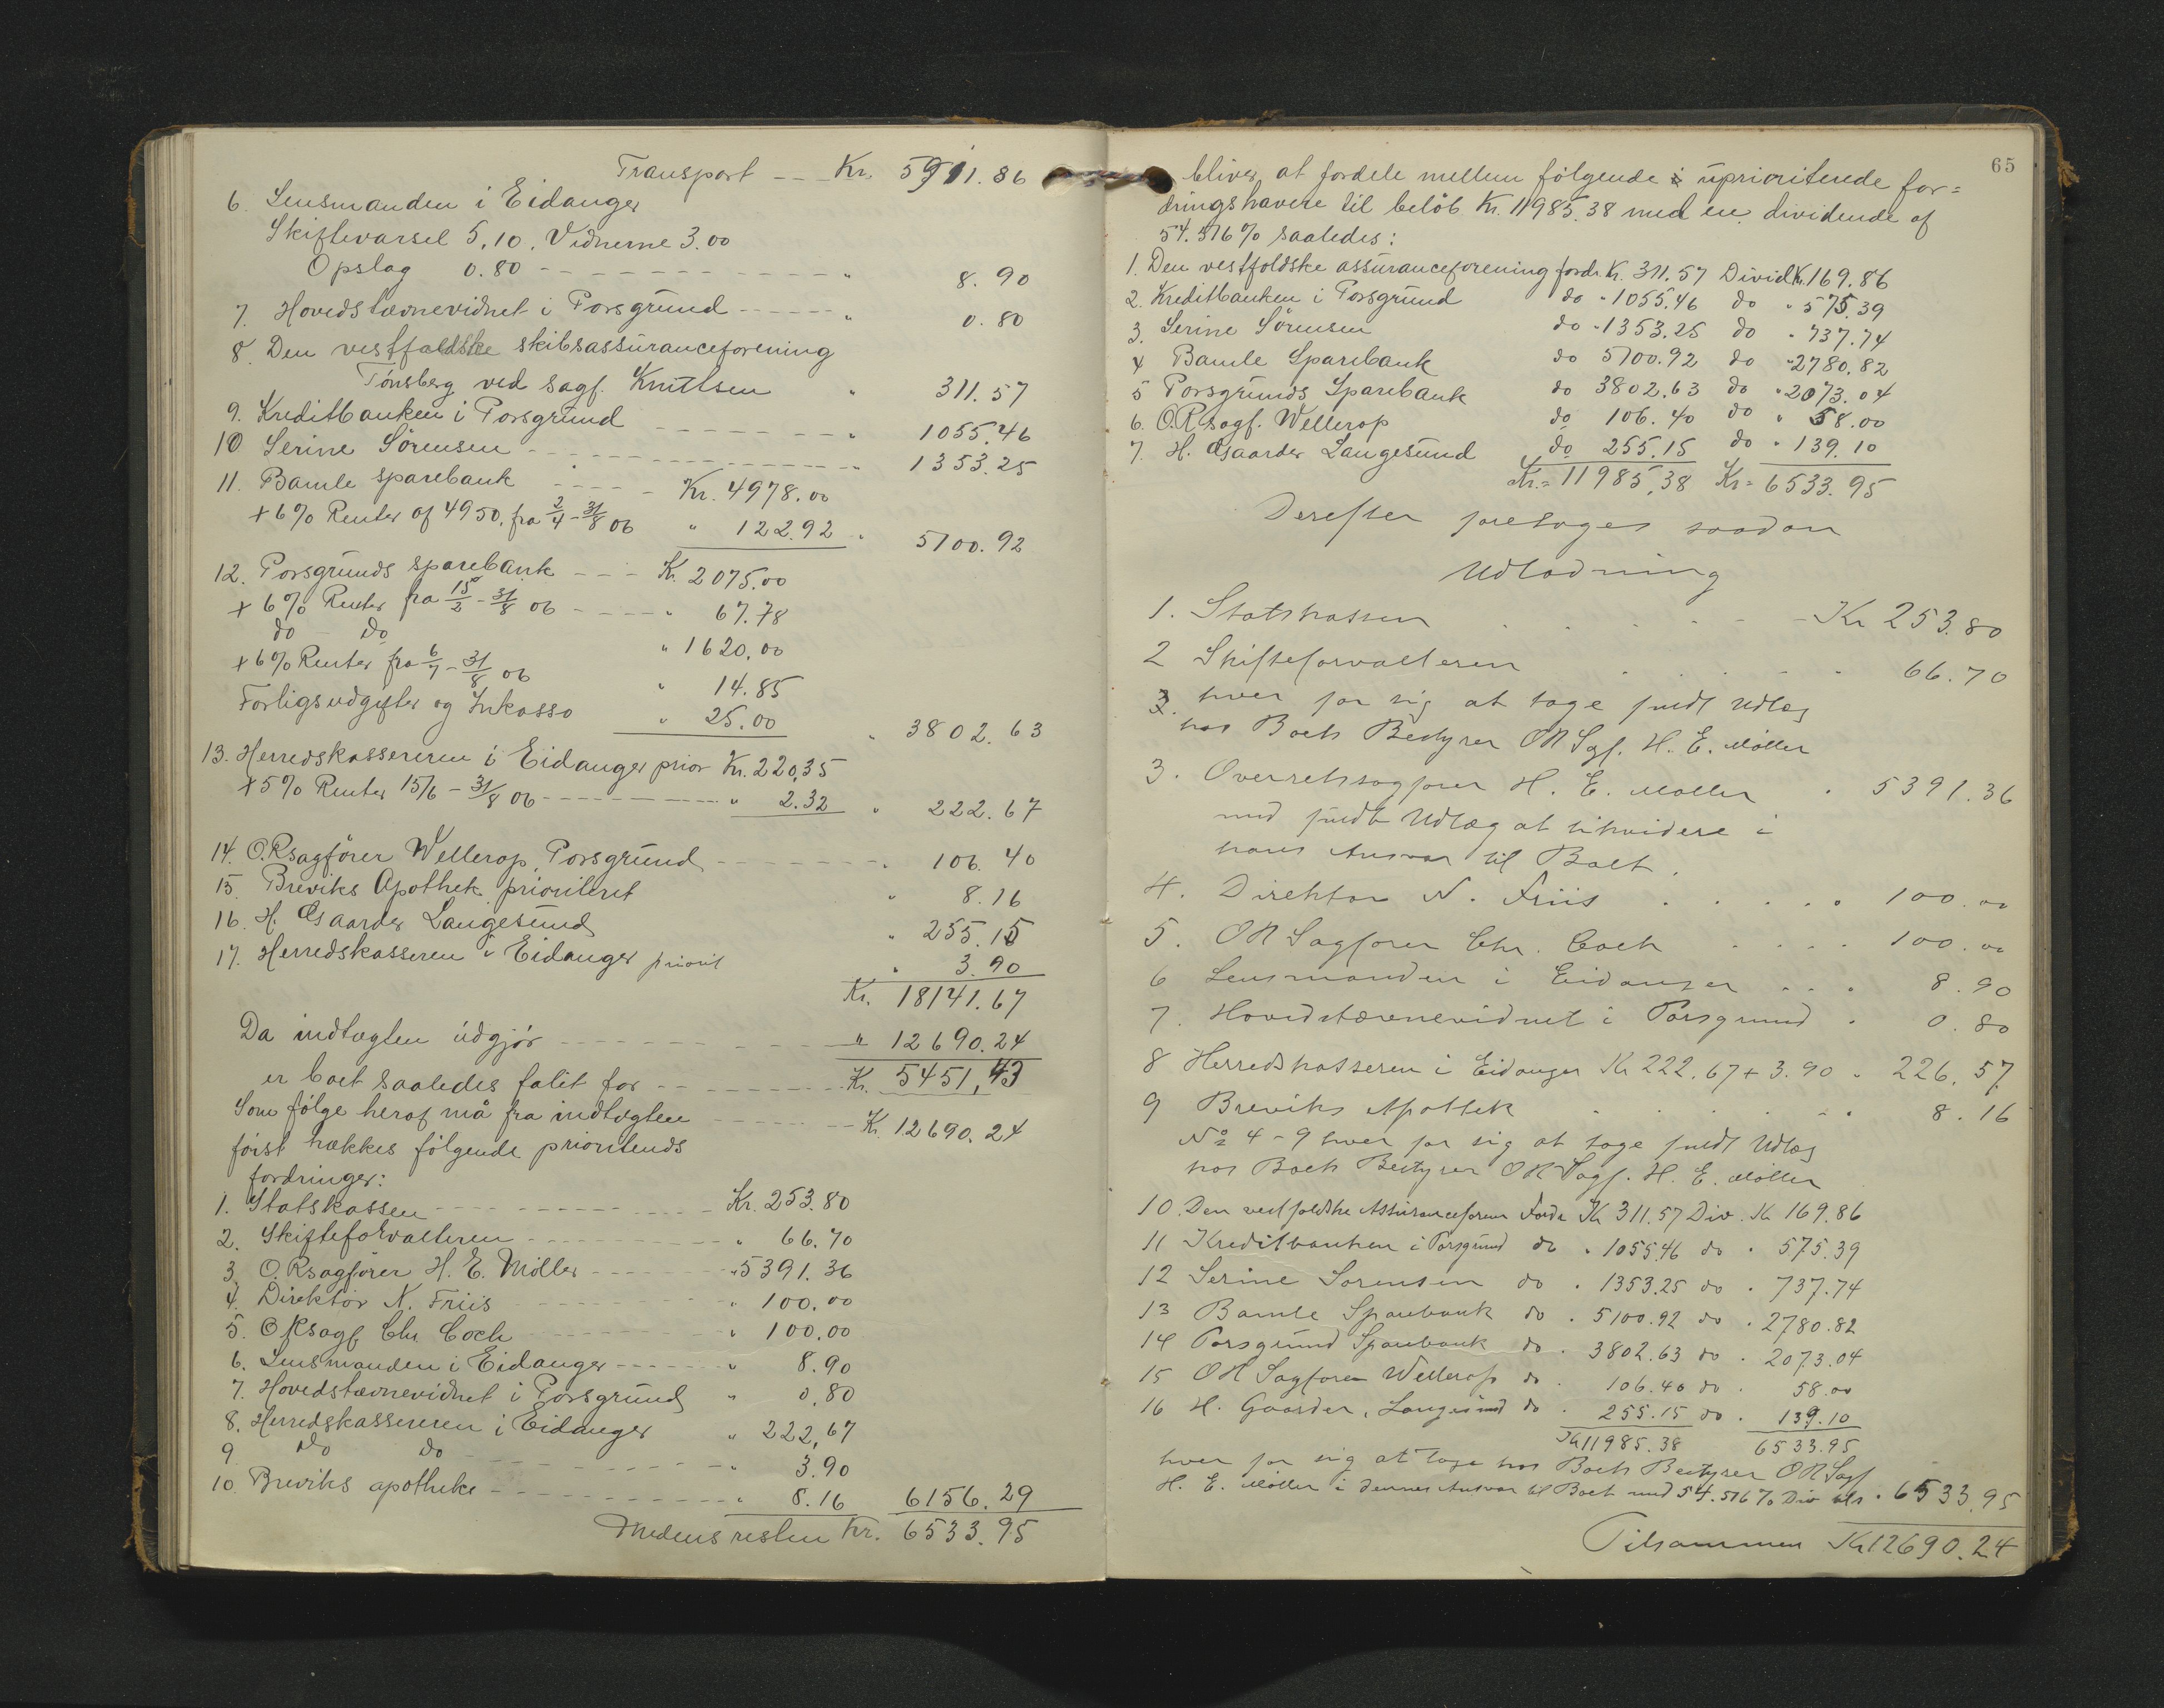 Transport -- Kr. 5911.86
6. Lensmanden i Eidanger
Skiftevarsel 5,10. Vidnerne 3.00
Opslag 0.80 - - - - - - " 8.90
7. Hovedstævnevidnet i Porsgrund - - - - - " 0.80
8. Den vestfoldske skibsassuranceforening
Tønsberg ved sagf. Knutsen " 311.57
9. Kreditbanken i Porsgrund - - - - - - " 1055.46
10 Serine Sörensen - - - - - - " 1353.25
11. Bamle sparebank - - - - Kr. 4978.00
+ 6% Renter af 4950, fra 2/4 - 31/8 06 " 122.92 " 5100.92
12. Porsgrunds sparebank - - - Kr. 2075.00
+ 6% Renter fra 15/2 - 31/8 06 - - - - " 67.78
do - do " 1620.00
+ 6% Renter fra 6/7 - 31/8 06 " 14.85
Forligsudgifter og Inkasso " 25.00 " 3802.63
13. Herredskassereren i Eidanger prior Kr. 220,35
+ 5% Renter 15/6 - 31/8 06 - - - - - - " 2.32 " 222.67
14. O.Rsagfører Wellerop, Porsgrund - - - - - - " 106.40
15 Breviks Apothek, prioriteret " 8.16
16. H. Gaarder Langesund " 255.15
17. Herredskasseren i Eidanger priorit " 3.90
Kr. 18141.67
Da indtægten udgjør - - - - - - " 12690.24
er boet saaledes falit for - - - - - - Kr. 5451,43
Som følge heraf må fra indtægten - - - - - - Kr. 12690.24
først trækkes følgende prioriterds
fordringer:
1. Statskassen - - - - - - Kr. 253.80
2. Skifteforvalteren - - - - - - " 66.70
3. O.Rsagfører H. E. Møller - - - - - " 5391.36
4. Direktør N. Friis - - - - - - " 100.00
5. ORsagf Chr Coch - - - - - - " 100.00
6. Lensmanden i Eidanger - - - - - " 8.90
7. Hovedstævnevidnet i Porsgrund " 0,80
8. Herredskassereren i Eidanger " 222,67
9 do do - - - - - - " 3.90
10. Breviks apotheke - - - - - - " 8.16 6156.29
Medens resten Kr. 6533.95
65
bliver at fordele mellem følgende uprioriterede for=
dringshavere til beløb Kr. 11985.38 med en dividende af
54.516% saaledes:
1. Den vestfoldske assuranceforening fordr. Kr. 311.57 Divid Kr. 169.86
2. Kreditbanken i Porsgrund do " 1055.46 do " 575.39
3. Serine Sörensen do " 1353.25 do " 737.74
4 Bamle Sparebank do 5100.92 do " 2780.82
5 Porsgrunds Sparebank do 3802.63 do " 2073.04
6. O.Rsagf. Wellerop do 106.40 do " 58.00
7. H. Gaarder Langesund do 255.15 do " 139.10
Kr. = 11985,38 Kr = 6533.95
Derefter foretoges saadan
Udlodning
1. Statskassen . . . . . - - Kr 253.80
2 Skifteforvalteren . . . . 66.70
hver for sig at tage fuldt Udlæg
hos Boets Bestyrer OR Sgf. H. E. Møller
3. Overretssagfører H. E. Møller " 5391.36
med fuldt Udlæg at likvidere i
hans Ansvar til Boet.
4. Direktør N. Friis . . . . . 100.00
5. OR Sagfører Chr. Coch . . . . 100.00
6 Lensmanden i Eidanger . . . 8.90
7. Hovedstævnevidnet i Porsgrund . 0.80
8 Herredskasseren i Eidanger Kr 222.67 + 3.90 " 226.57
9 Breviks Apothek . . . . . . 8.16
No 4 - 9 hver for sig at tage fuldt Udlæg
hos Boets Bestyrer OR Sagf. H. E. Møller
10. Den vestfoldske Assuranceforen Fordr Kr 311.57 Div. Kr 169.86
11 Kreditbanken i Porsgrund do " 1055.46 do " 575.39
12 Serine Sørensen do " 1353.25 do " 737.74
13 Bamle Sparebank do " 5100.92 do " 2780.82
14 Porsgrund Sparebank do " 3802.63 do " 2073.04
15 OR Sagfører Wellerop do " 106.40 do " 58.00
16 H. Gaarder, Langesund do " 255.15 do " 139.10
Kr 11985.38 6533.95
hver for sig at tage hos Boets Bestyrer OR Sagf
H. E. Møller i dennes Ansvar til Boet med 54.516% Div " 6533.95
Tilsammen Kr 12690.24